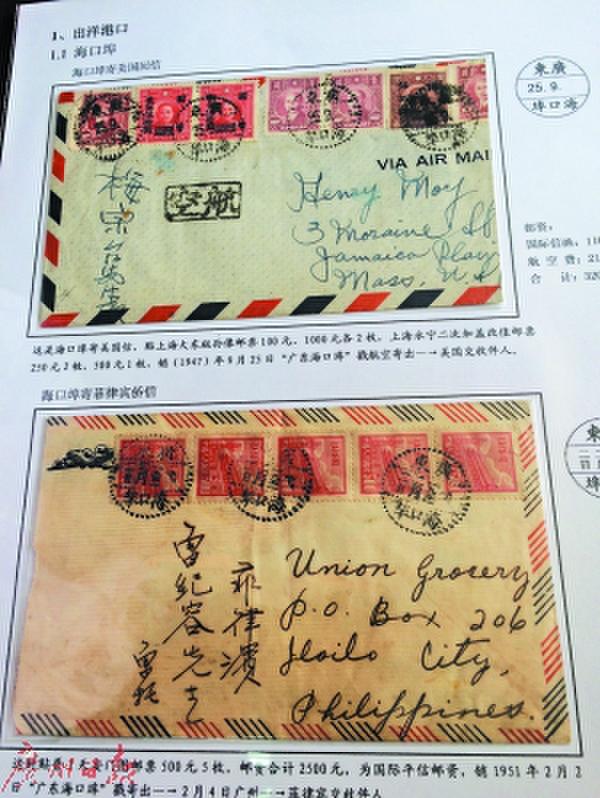 1、出洋港口
1.1 海口埠
海口埠寄美国侨信
東廣
25.9.
埠口海
VIA AIR MAI
空航
Henry Moy
3 Moraine St
Jamaica Play
Mass, U.S
邮资:
国际信函:
航空费:
合计:
这是海口埠寄美国信，贴上海大东版孙像邮票100元、1000元各2枚，上海永宁二次加盖改值邮票
250元2枚，500元1枚，销（1947）年9月25日“广东海口埠”戳航空寄出—→美国交收件人。
海口埠寄菲律宾侨信
菲律濱
Union Grocery
P.O. Box 206
Iloilo City,
Philippines.
广州日报
邮票500元5枚，邮资合计2500元，为国际平信邮资，销1951年2月2
日“广东海口埠”戳寄出—→2月4日广州—→菲律宾交收件人